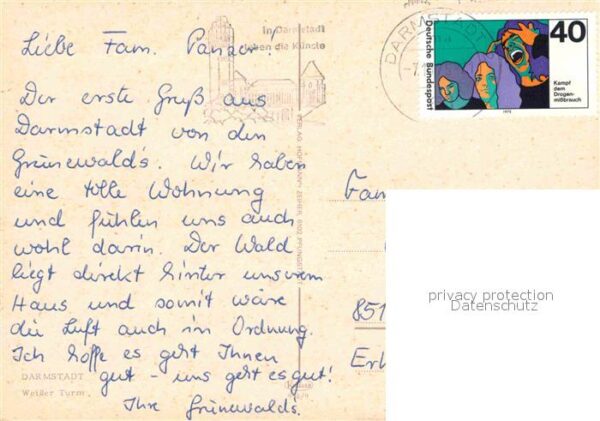 Liebe Fam. Panzer.
Der erste Gruß aus
Darmstadt von den
Grünewald's. Wir haben
eine tolle Wohnung
und fühlen uns auch
wohl darin. Der Wald
liegt direkt hinter unserem
Haus und somit wäre
die Luft auch in Ordnung.
Ich hoffe es geht Ihnen
gut - uns geht es gut!
Ihre Grünewald's.
DARMSTADT
Weißer Turm
In Darmstadt
leben die Künste
DARMSTADT
40
Deutsche Bundespost
Kampf
dem
Drogen-
mißbrauch
1975
Fam
851
Erl
privacy protection
Datenschutz